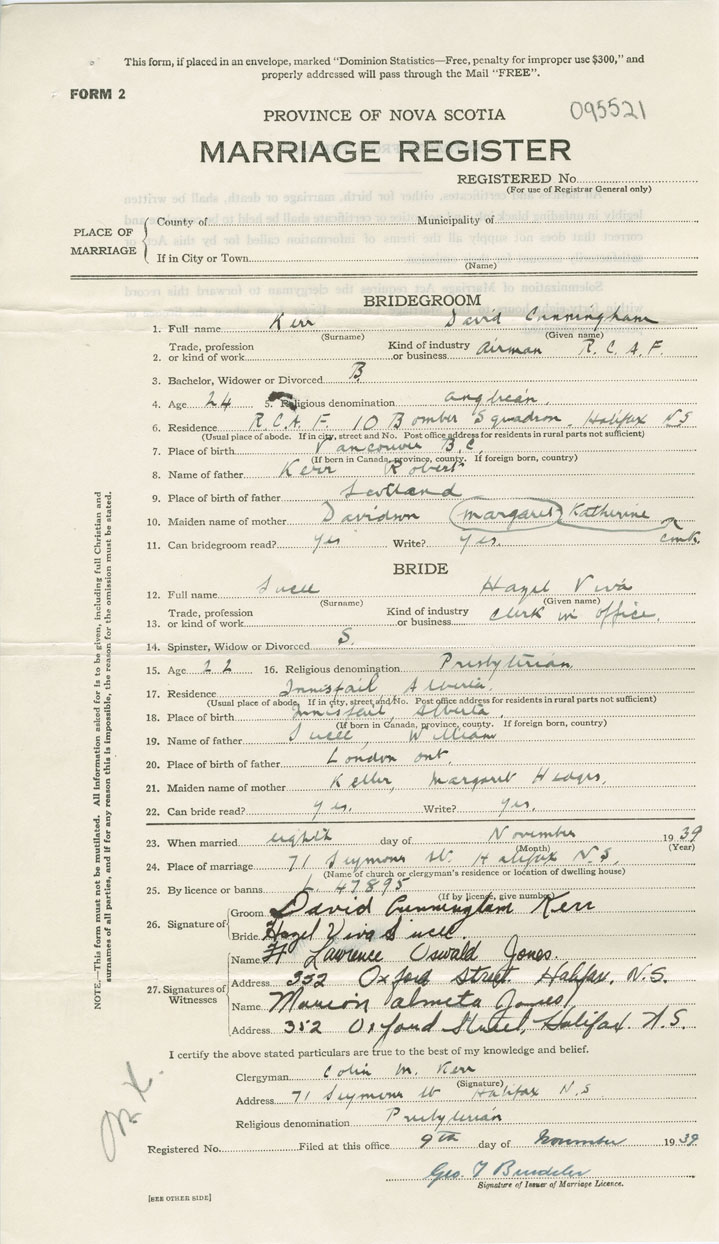 This form, if placed in an envelope, marked "Dominion Statistics—Free, penalty for improper use $300," and
properly addressed will pass through the Mail "FREE".
FORM 2
PROVINCE OF NOVA SCOTIA
095521
MARRIAGE REGISTER
REGISTERED No.
(For use of Registrar General only)
PLACE OF MARRIAGE
County of Municipality of
If in City or Town
(Name)
BRIDEGROOM
1. Full name Kerr David Cunningham
(Surname) (Given name)
2. Trade, profession or kind of work Kind of industry or business Airman R.C.A.F.
3. Bachelor, Widower or Divorced B.
4. Age 24 5. Religious denomination Anglican.
6. Residence R.C.A.F. 10 Bomber Squadron. Halifax NS
(Usual place of abode. If in city, street and No. Post office address for residents in rural parts not sufficient)
7. Place of birth Vancouver B.C.
(If born in Canada, province, county. If foreign born, country)
8. Name of father Kerr Robert
9. Place of birth of father Scotland
10. Maiden name of mother Davidson Margaret Katherine
11. Can bridegroom read? yes Write? yes.
BRIDE
12. Full name Hazel Viva
(Surname) (Given name)
13. Trade, profession or kind of work Kind of industry or business Clerk in office.
14. Spinster, Widow or Divorced S.
15. Age 22 16. Religious denomination Presbyterian
17. Residence Innisfail, Alberta.
(Usual place of abode. If in city, street and No. Post office address for residents in rural parts not sufficient)
18. Place of birth Innisfail, Alberta,
(If born in Canada, province, county. If foreign born, country)
19. Name of father William
20. Place of birth of father London Ont.
21. Maiden name of mother Keller, Margaret Hedges,
22. Can bride read? yes. Write? yes.
23. When married eighth day of November 1939
(Month) (Year)
24. Place of marriage 71 Seymour St. Halifax N.S.
(Name of church or clergyman's residence or location of dwelling house)
25. By licence or banns L. 47895
(If by licence, give number)
26. Signature of
Groom David Cunningham Kerr
Bride Hazel Viva
27. Signatures of Witnesses
Name Lawrence Oswald Jones.
Address 352 Oxford Street. Halifax, N.S.
Name Marion Almeta Jones,
Address 352 Oxford Street, Halifax. N.S.
I certify the above stated particulars are true to the best of my knowledge and belief.
Clergyman Colin M. Kerr
(Signature)
Address 71 Seymour St Halifax N.S
Religious denomination Presbyterian
Registered No. Filed at this office 9th day of November 1939
Signature of Issuer of Marriage Licence.
[SEE OTHER SIDE]
NOTE.—This form must not be mutilated. All information asked for is to be given, including full Christian and
surnames of all parties, and if for any reason this is impossible, the reason for the omission must be stated.